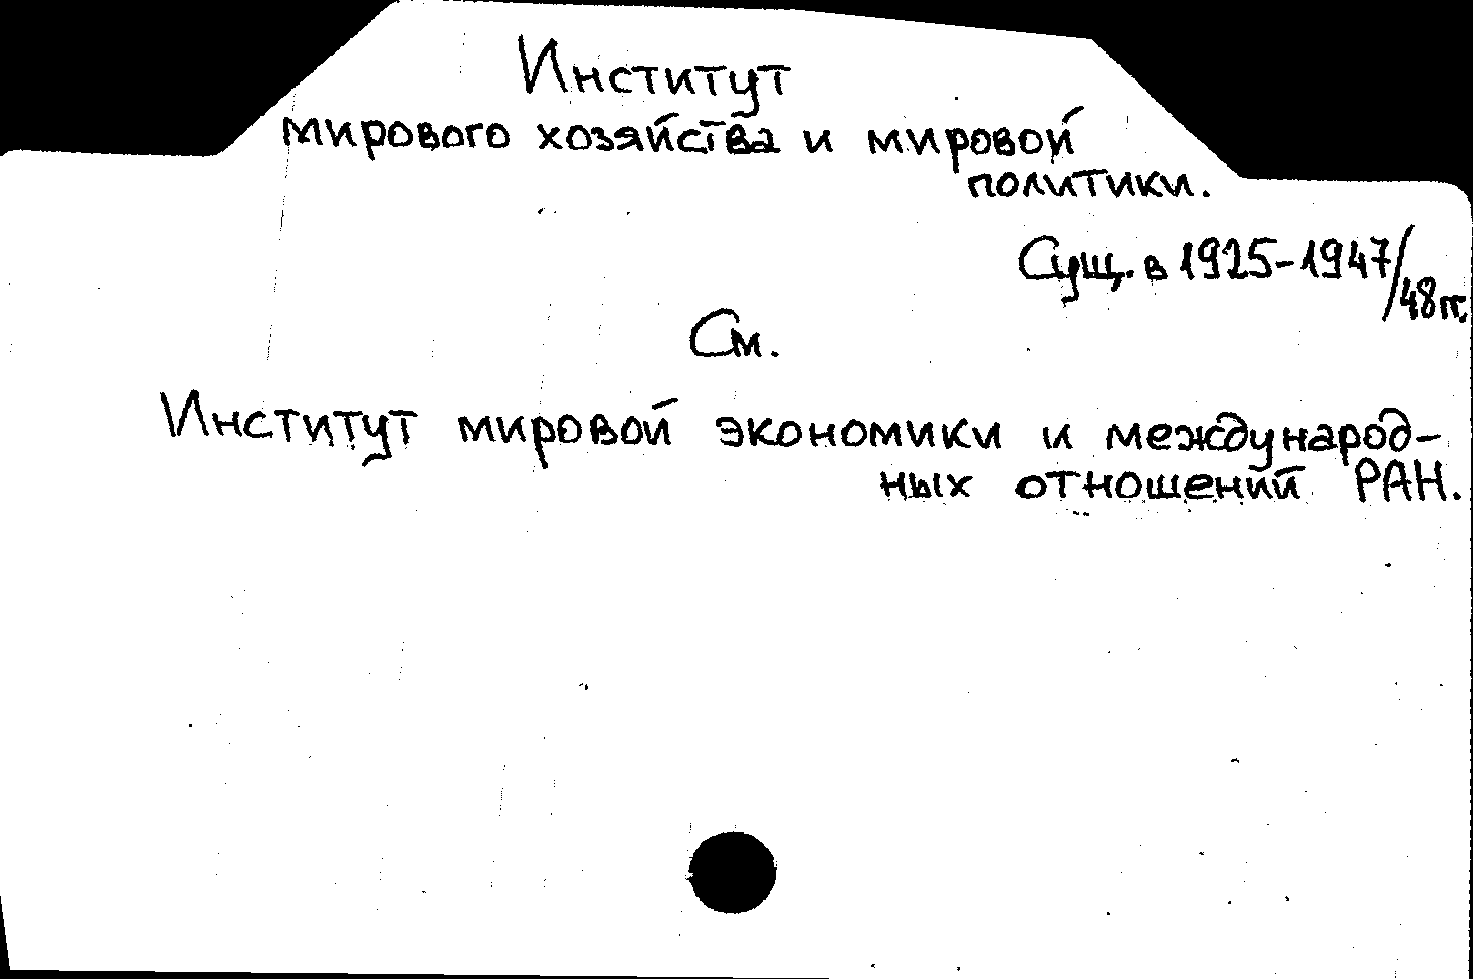 Институт
мирового хозяйства и мировой
политики.
Сущ. в 1925-1947/48 гг.
См.
Институт мировой экономики и международ-
ных отношений РАН.